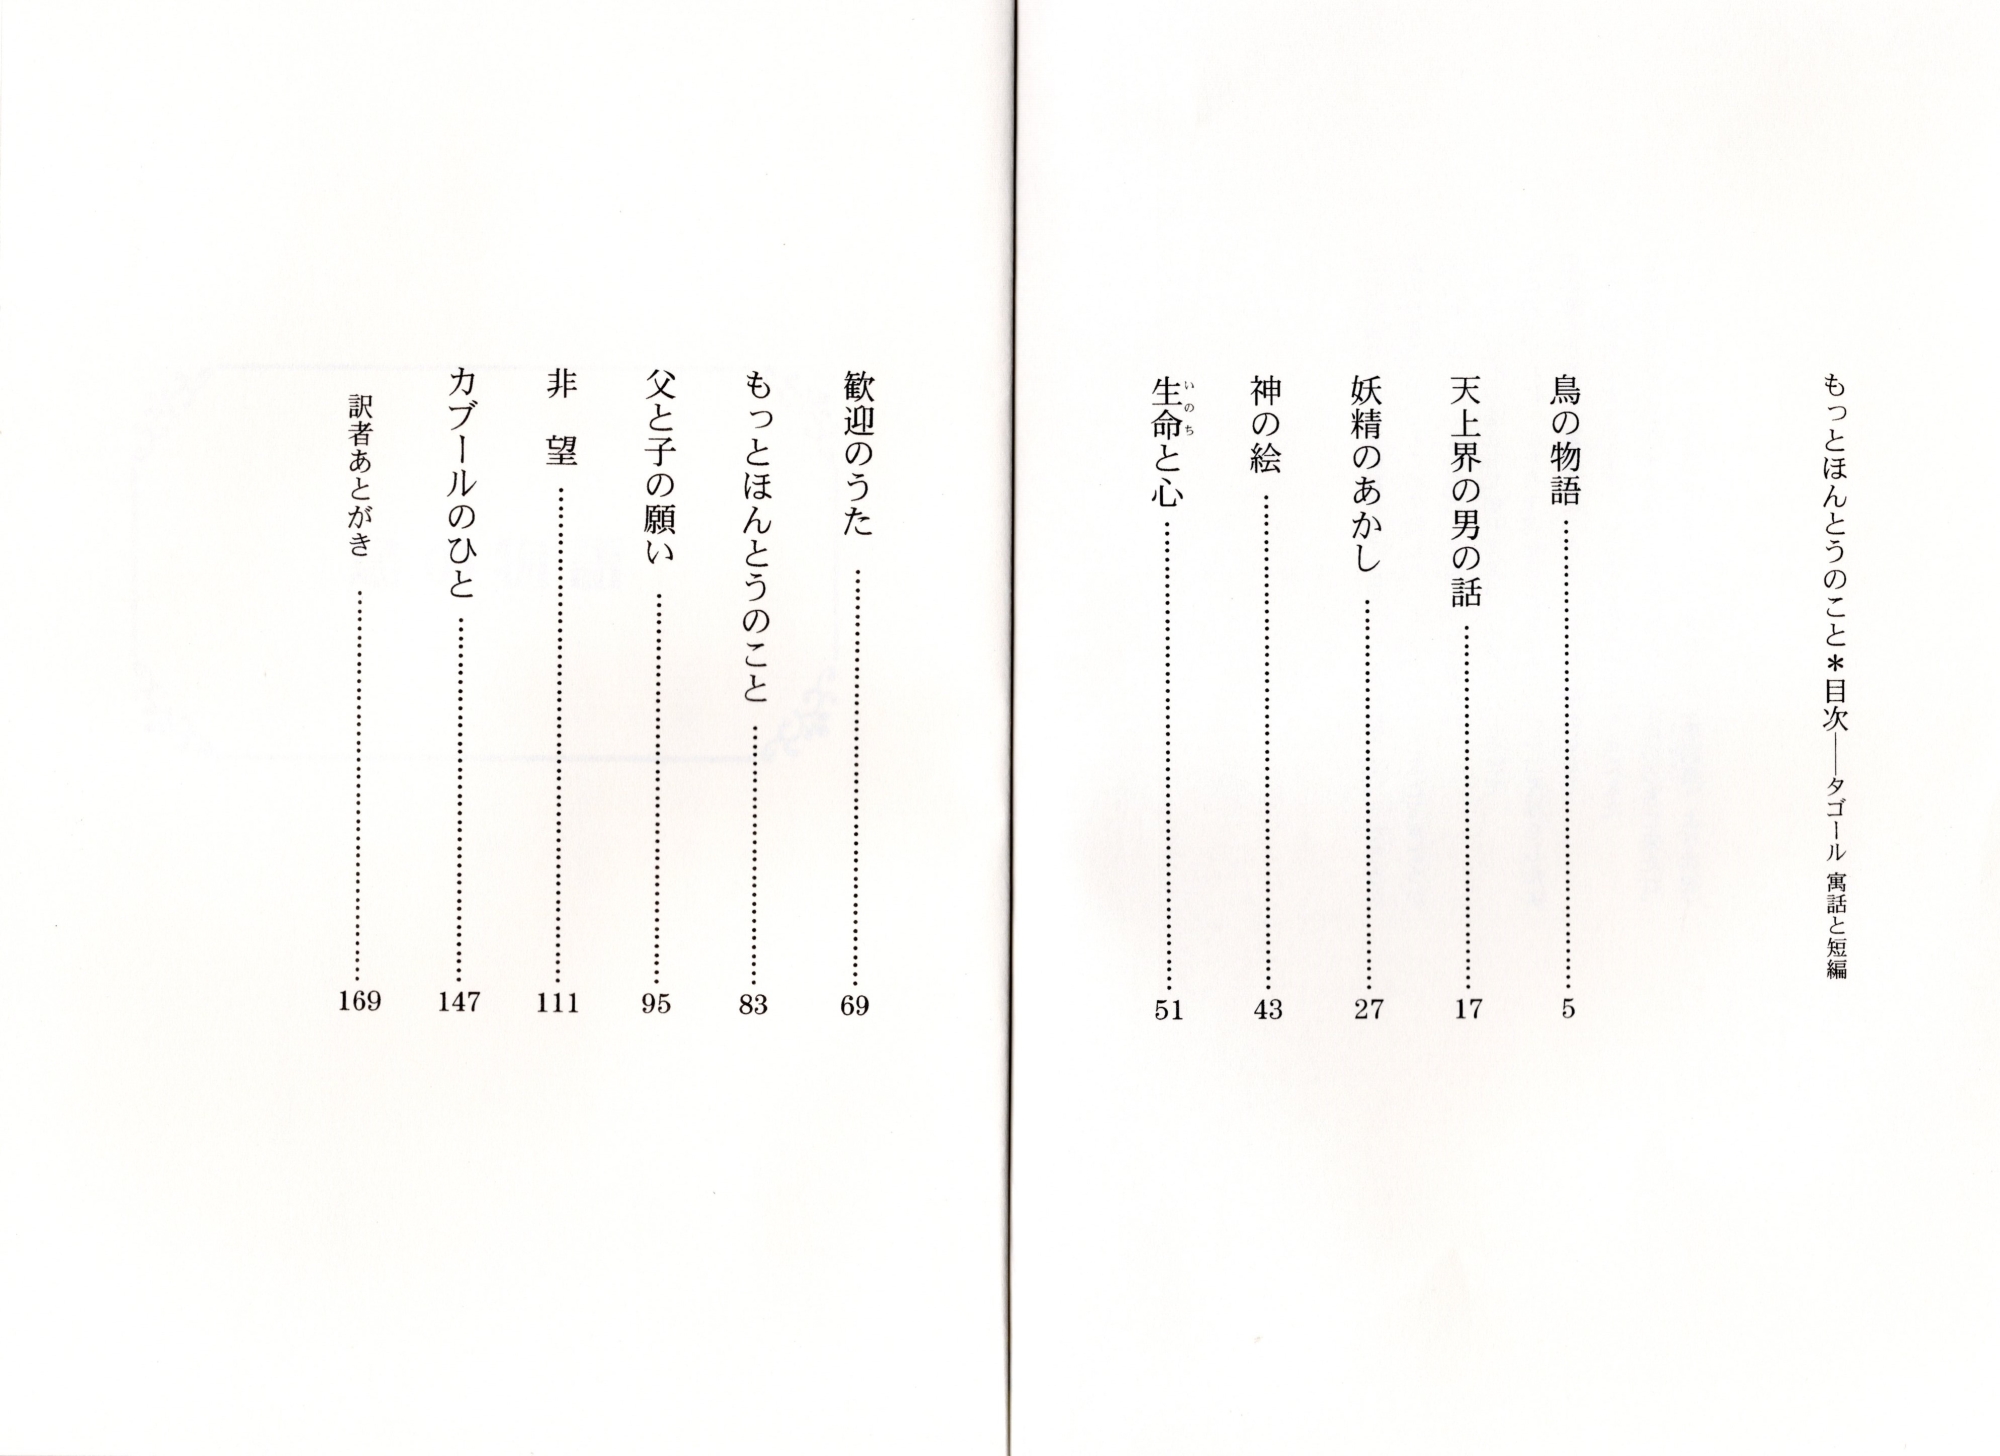 もっとほんとうのこと＊目次――タゴール 寓話と短編
鳥の物語……………………5
天上界の男の話……………………17
妖精のあかし……………………27
神の絵……………………43
生命と心……………………51
いのち
歓迎のうた……………………69
もっとほんとうのこと……………………83
父と子の願い……………………95
非　望……………………111
カブールのひと……………………147
訳者あとがき……………………169